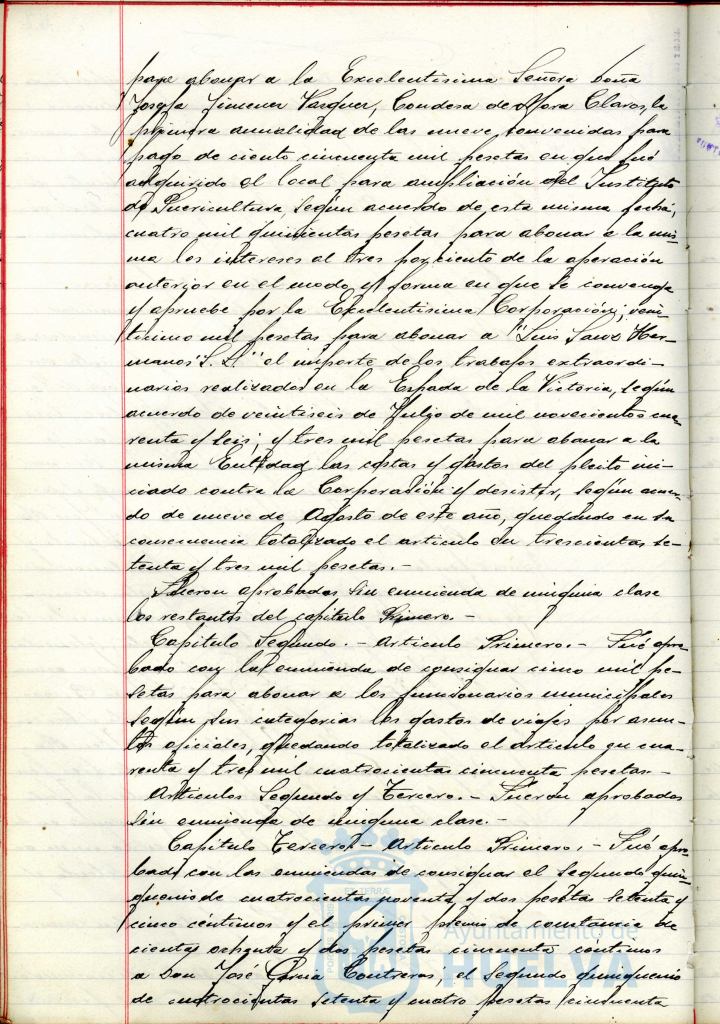 para abonar a la Excelentisima Señora Doña
Josefa Jimenez Vazquez, Condesa de Mora Claros, la
primera anualidad de las nueve convenidas para
pago de ciento cincuenta mil pesetas en que fué
adquirido el local para ampliación del Instituto
de Puericultura, según acuerdo de esta misma fecha;
cuatro mil quinientas pesetas para abonar a la mis-
ma los intereses al tres por ciento de la operación
anterior en el modo y forma en que se convenga
y apruebe por la Excelentisima Corporación; vein-
ticinco mil pesetas para abonar a "Luis Sanz Her-
manos S. L." el importe de los trabajos extraordi-
narios realizados en la Espada de la Victoria, según
acuerdo de veintiseis de Julio de mil novecientos cua-
renta y seis; y tres mil pesetas para abonar a la
misma Entidad las costas y gastos del pleito ini-
ciado contra la Corporación y desistir, según acuer-
do de nueve de Agosto de este año, quedando en su
consecuencia totalizado el articulo en trescientas se-
tenta y tres mil pesetas.-
Fueron aprobados sin enmienda de ninguna clase
los restantes del capitulo Primero.-
Capitulo Segundo.- Articulo Primero.- Fué apro-
bado con la enmienda de consignar cinco mil pe-
setas para abonar a los funcionarios municipales
según sus categorias los gastos de viajes por asun-
tos oficiales, quedando totalizado el articulo en cua-
renta y tres mil cuatrocientas cincuenta pesetas.-
Articulos Segundo y Tercero.- Fueron aprobados
sin enmienda de ninguna clase.-
Capitulo Tercero.- Articulo Primero.- Fué apro-
bado con las enmiendas de consignar el segundo quin-
quenio de cuatrocientas noventa y dos pesetas setenta y
cinco céntimos y el primer premio de constancia de
ciento ochenta y dos pesetas cincuenta céntimos
a Don José Garcia Contreras; el segundo quinquenio
de cuatrocientas setenta y cuatro pesetas cincuenta
Ayuntamiento de
HUELVA